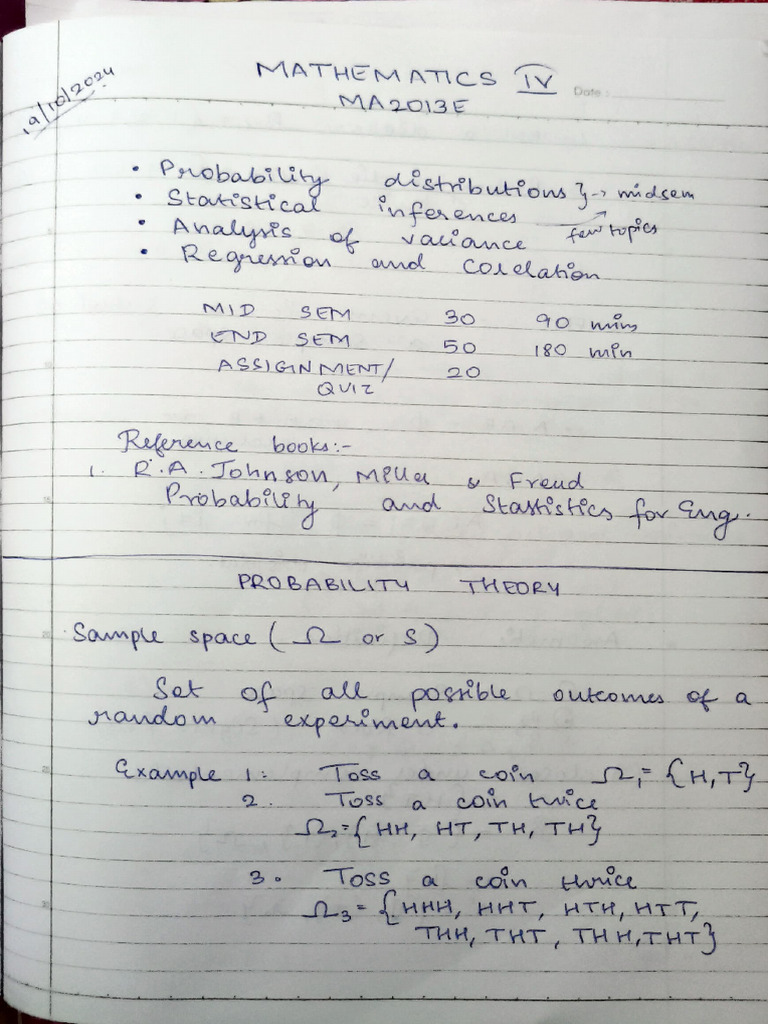 19/10/2024
MATHEMATICS IV
Date:
MA2013E
• Probability distributions } → midsem
• Statistical inferences
few topics
• Analysis of variance
• Regression and corelation
MID SEM 30 90 mins
END SEM 50 180 min
ASSIGNMENT/ 20
QUIZ
Reference books:-
1. R.A. Johnson, & Freud
Probability and Stastistics for Eng.
PROBABILITY THEORY
Sample space ( Ω or S )
Set of all possible outcomes of a
random experiment.
Example 1: Toss a coin Ω₁= {H,T}
2. Toss a coin twice
Ω₂={ HH, HT, TH, TH}
3. Toss a coin thrice
Ω₃= {HHH, HHT, HTH, HTT,
THH, THT, THH, THT}